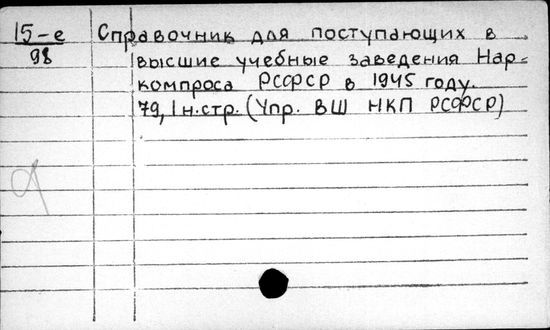 15-е Справочник для поступающих в
98 высшие учебные заведения Нар-
компроса РСФСР в 1945 году.
79, 1 н.стр. (Упр. ВШ НКП РСФСР)